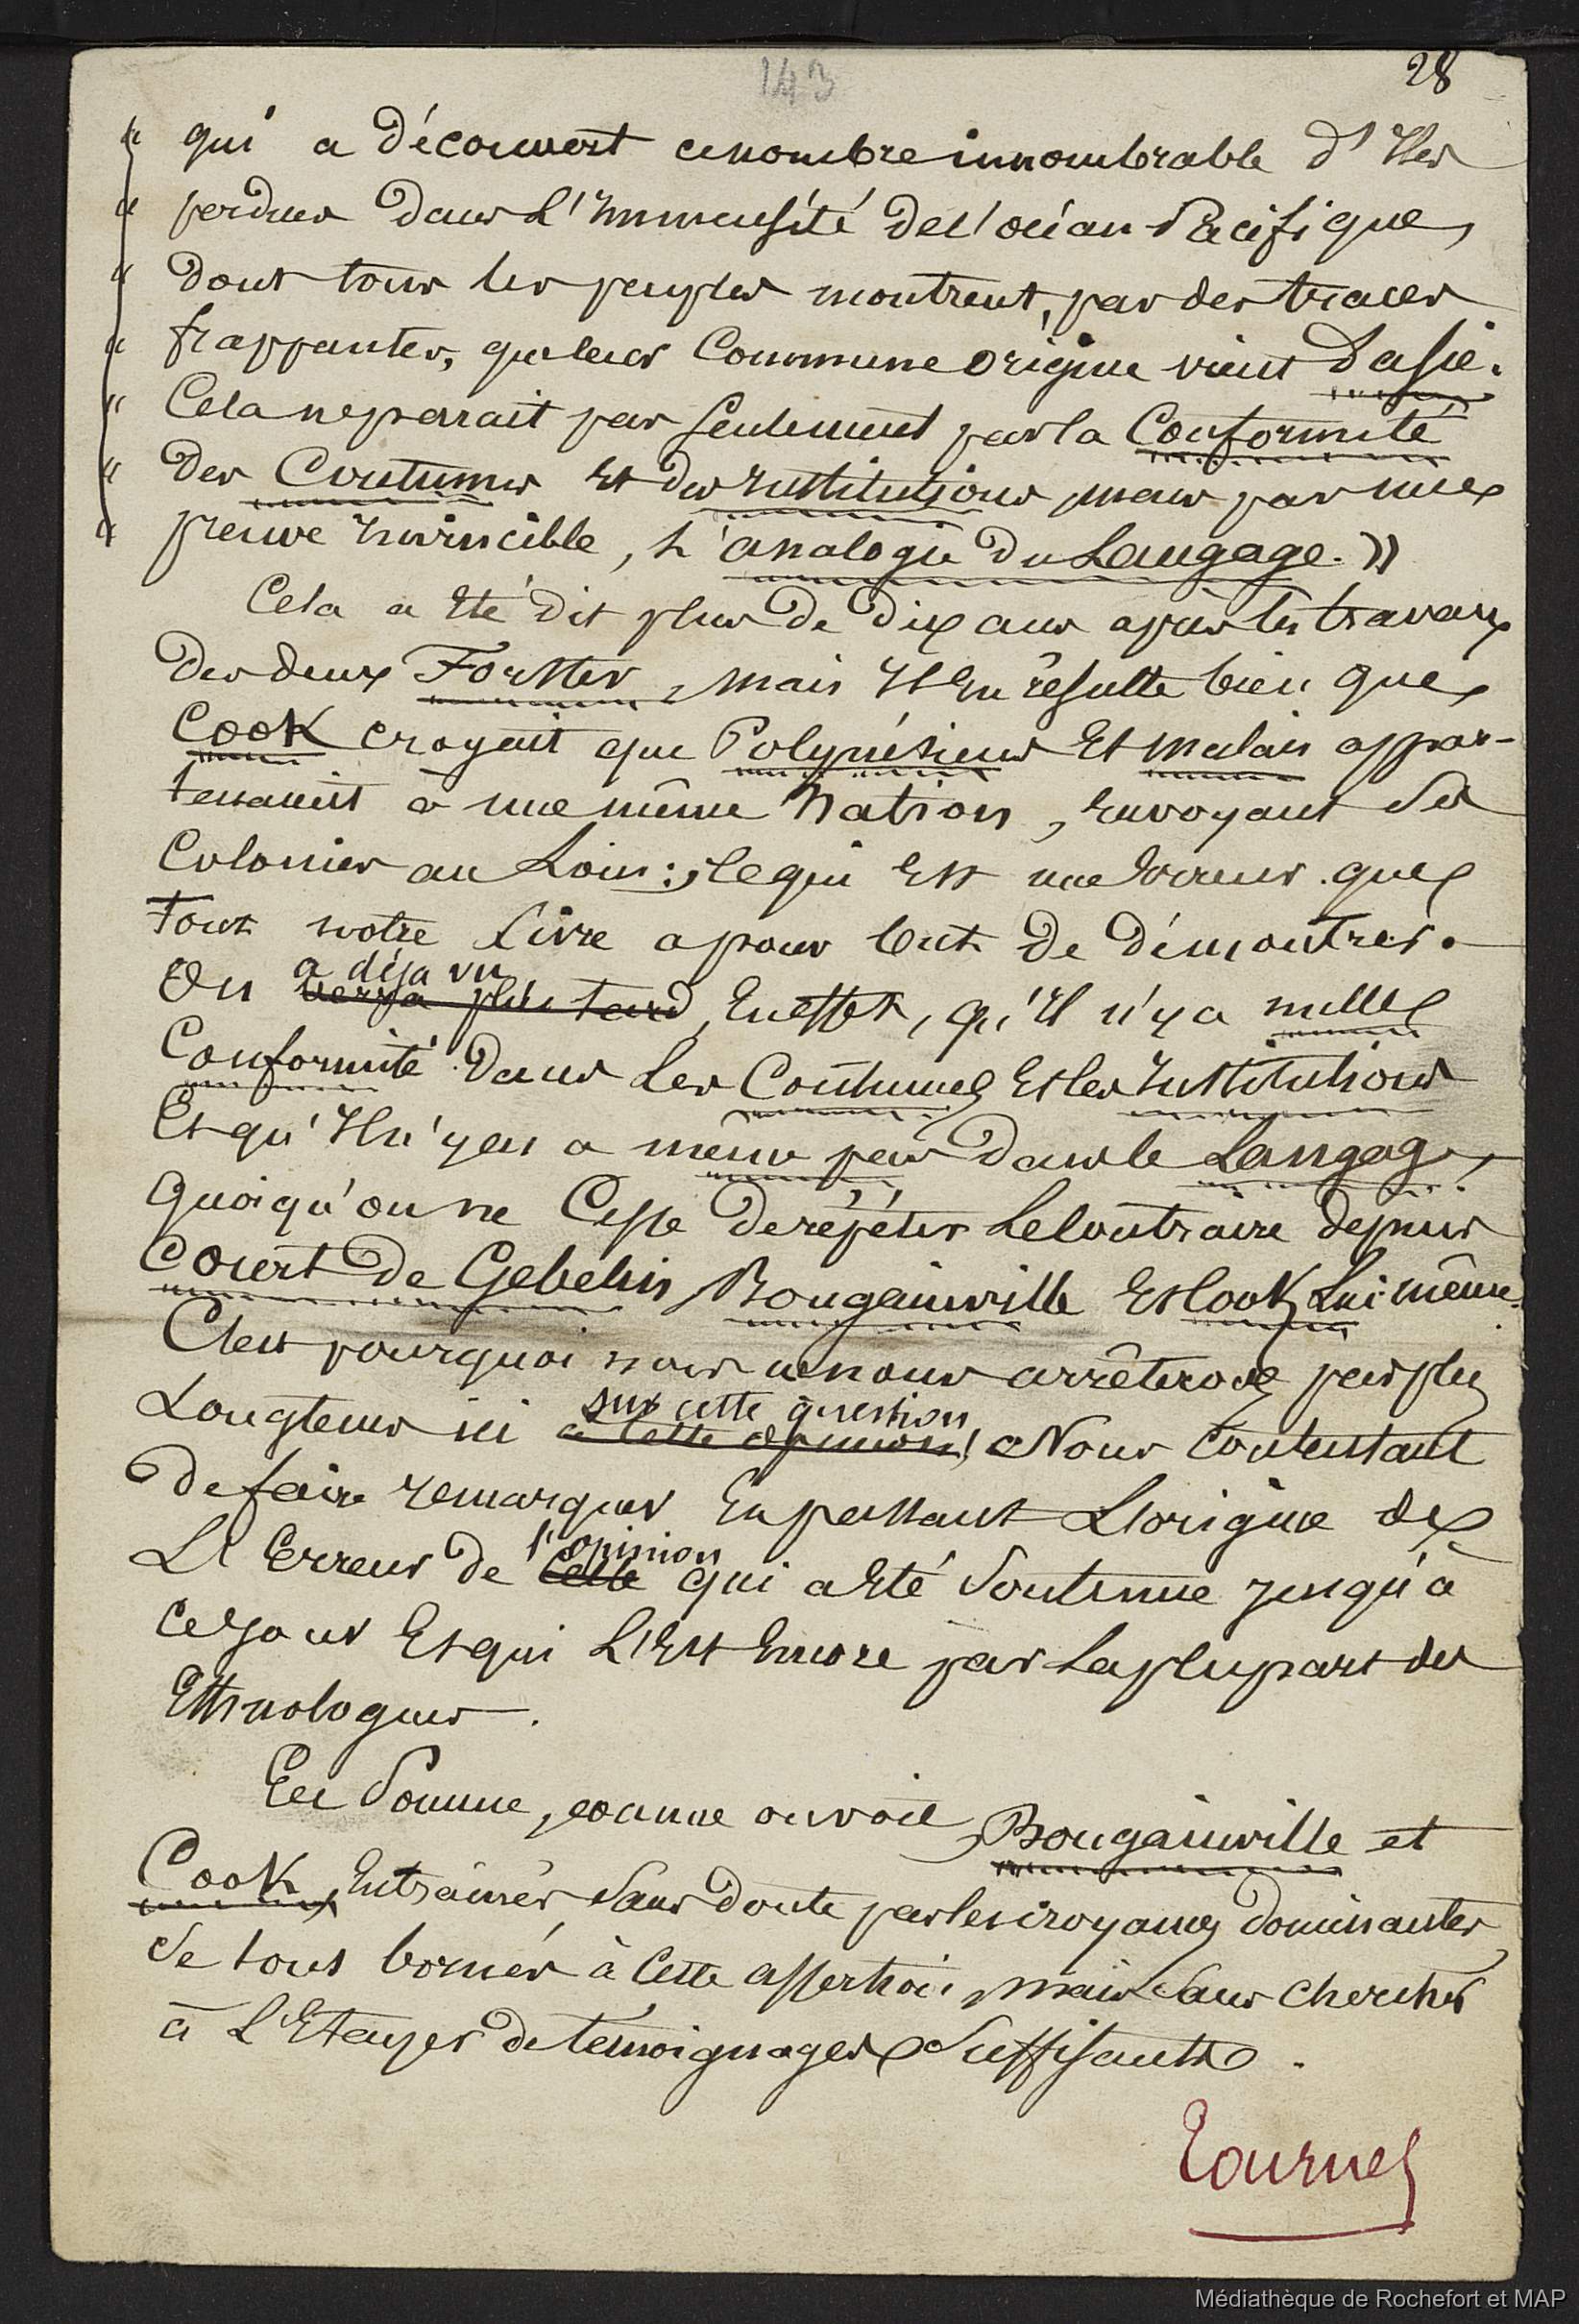 143
28
" qui a découvert ce nombre innombrable d'Iles
" perdues dans L'Immensité de l'océan Pacifique,
" dont tous les peuples montrent, par des traces
" frappantes, que leur Commune origine vient D'asie.
" Cela ne parait pas seulement par la Conformité
" des Coutumes Et des Institutions, mais par une
" preuve Invincible, L'analogie du Langage. »
Cela a Eté dit plus de dix ans après les travaux
des deux Forster, mais Il En résulte bien que
Cook croyait que Polynésiens Et malais appar-
tenaient à une même Nation, Envoyant des
Colonies au Loin: ce qui Est une Erreur que
tout notre Livre a pour but de démontrer.
On a déja vu
verra plus tard, En effet, qu'Il n'y a nulle
Conformité dans Les Coutumes Et les Institutions
Et qu'Il n'y en a même peu dans le Langage,
quoiqu'on ne Cesse de répéter Le Contraire depuis
Court de Gebelin, Bougainville Et Cook Lui-même.
C'est pourquoi nous ne nous arrêterons pas plus
Longtems ici sur cette question
à cette opinion, Nous Contentant
de faire remarquer En passant L'origine de
L'Erreur de l'opinion
celle qui a Eté Soutenue jusqu'à
ce jour Et qui L'Est Encore par La plupart des
Ethnologues.
En Somme, comme on voit, Bougainville et
Cook, Entraînés Sans doute par les croyances dominantes,
Se sont bornés à Cette assertion, mais Sans chercher
à L'Etayer de témoignages Suffisants.
Tournez
Médiathèque de Rochefort et MAP